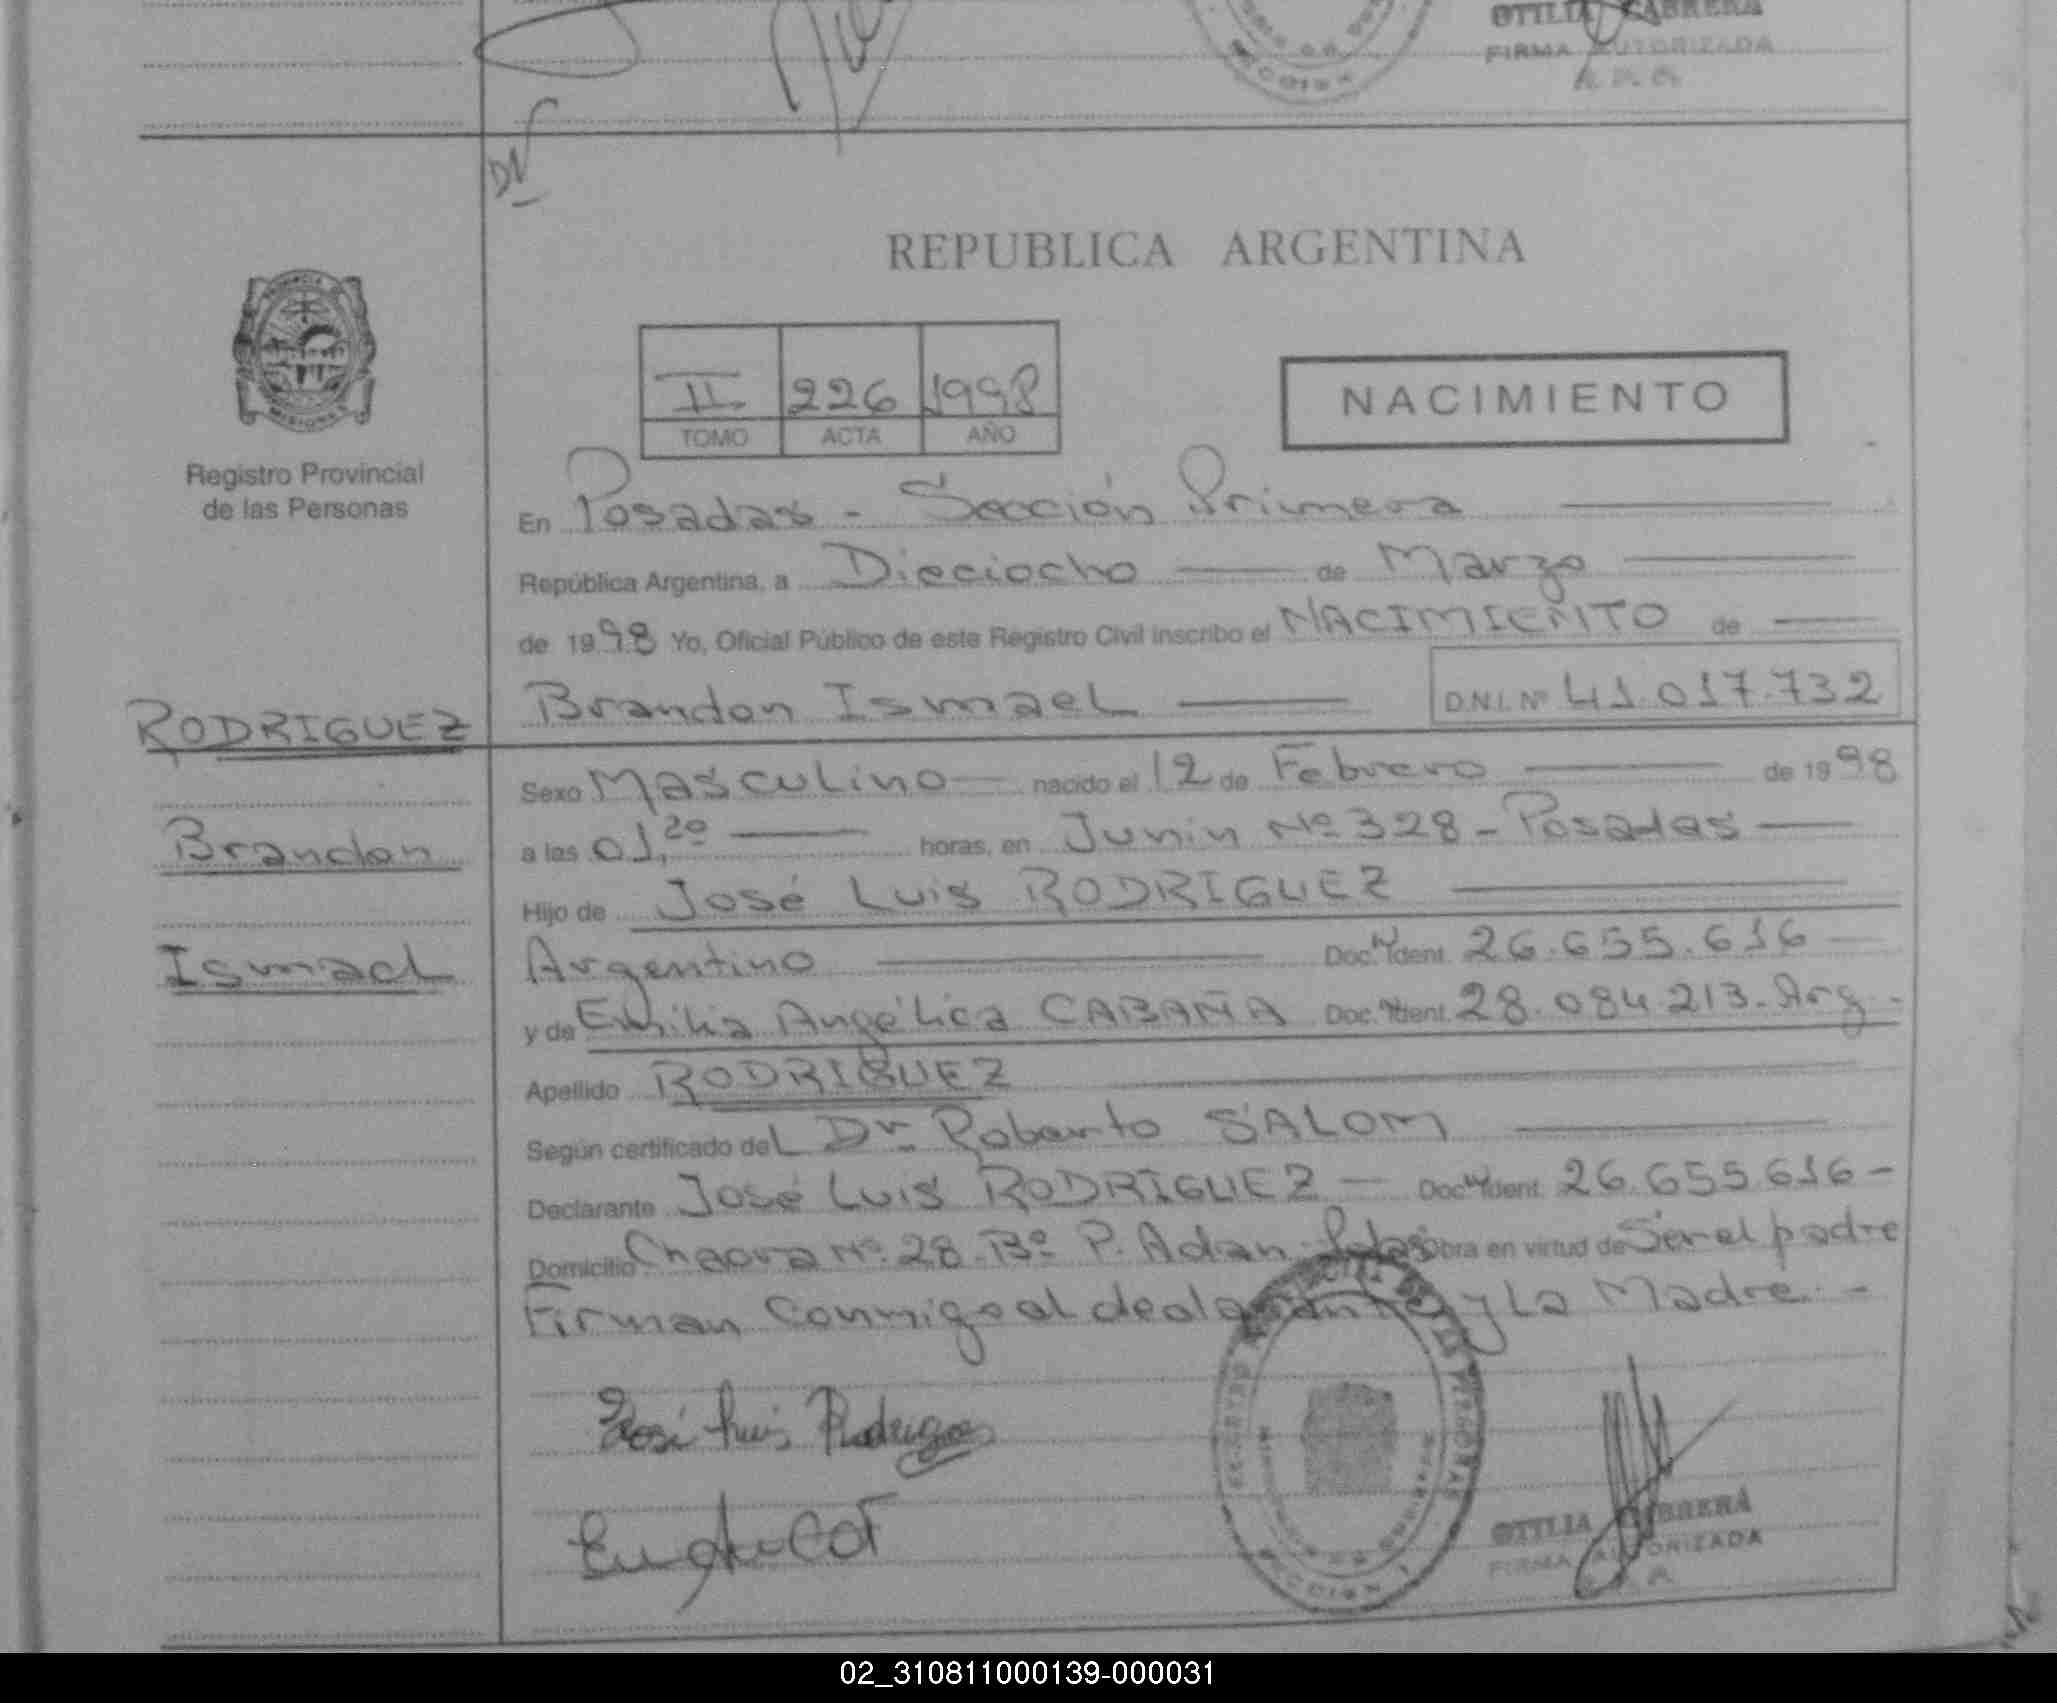 OTILIA CABRERA
FIRMA AUTORIZADA
REPUBLICA ARGENTINA
II 226 1998
TOMO ACTA AÑO
NACIMIENTO
Registro Provincial
de las Personas
En Posadas - Sección Primera
República Argentina, a Dieciocho de Marzo
de 1998 Yo, Oficial Público de este Registro Civil inscribo el NACIMIENTO de
RODRIGUEZ
Brandon Ismael D.N.I. Nº 41.017.732
Sexo Masculino nacido el 12 de Febrero de 1998
Brandon
a las 01,20 horas, en Junin Nº 328 - Posadas
Hijo de José Luis RODRIGUEZ
Ismael
Argentino Doc. Ident. 26.655.616
y de Emilia Angélica CABAÑA Doc. Ident. 28.084.213 - Arg -
Apellido RODRIGUEZ
Según certificado del Dr. Roberto SALOM
Declarante José Luis RODRIGUEZ - Doc. Ident. 26.655.616 -
Domicilio Nº 28 Bº P. Adan Obra en virtud de Ser el padre
Firman Conmigo el declarante y La Madre. -
José Luis Rodrigues
OTILIA CABRERA
FIRMA AUTORIZADA
02_310811000139-000031